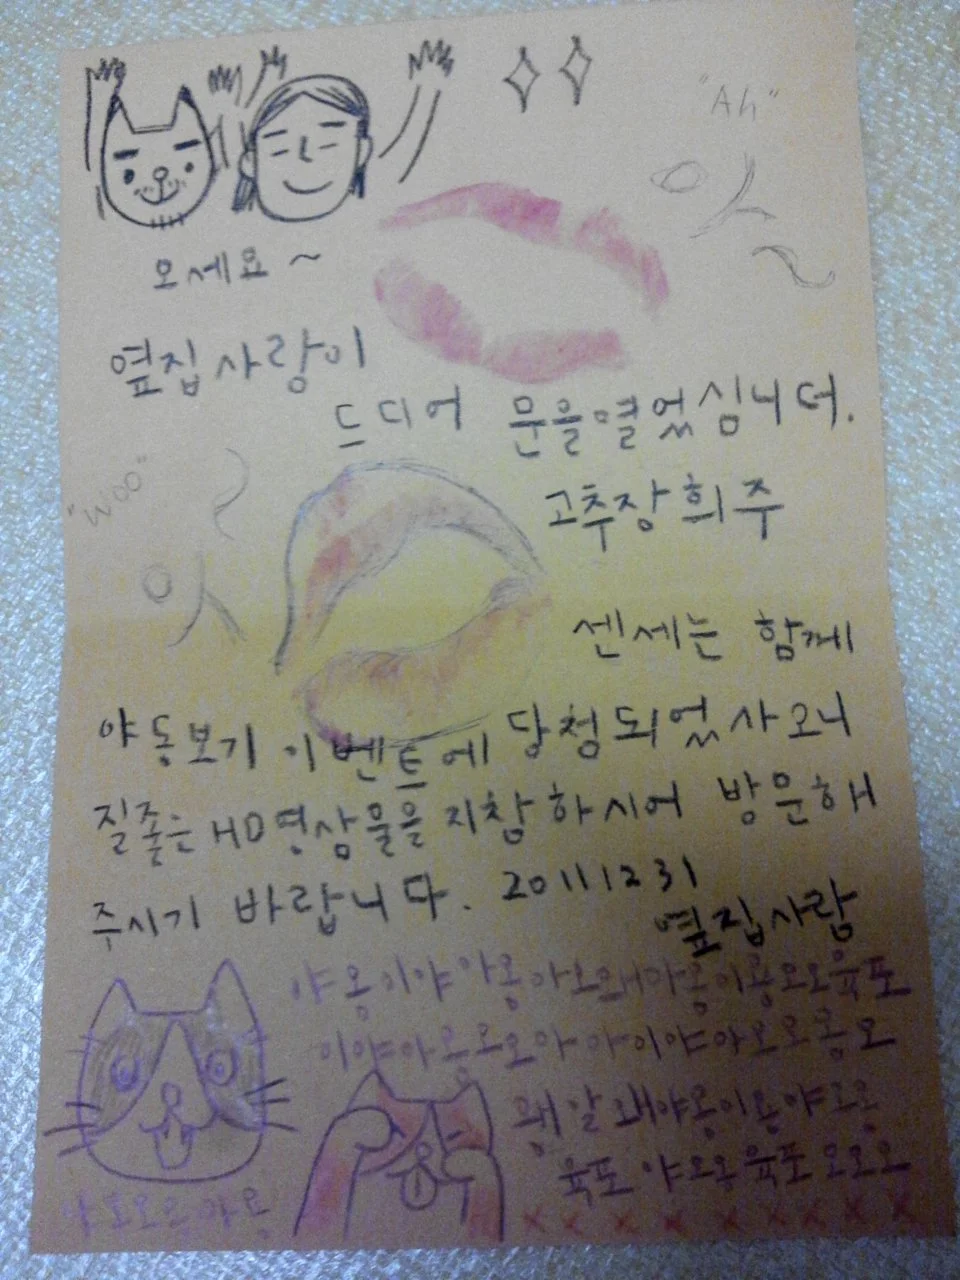 "Ah"
앗~
오세요~
옆집사랑이
드디어 문을열었심니더.
"Woo"
앗~
고추장희주
센세는 함께
야동보기 이벤트에 당첨되었사오니
질좋은HD영상물을 지참하시어 방문해
주시기 바랍니다. 20111231
옆집사람
야옹이야아옹아오왜마옹이옹오오육포
이야아옹오오아아이야아오오옹오
왱알왜야옹이옹야
육포 야오옹육포오오오
X X X X X X X X X